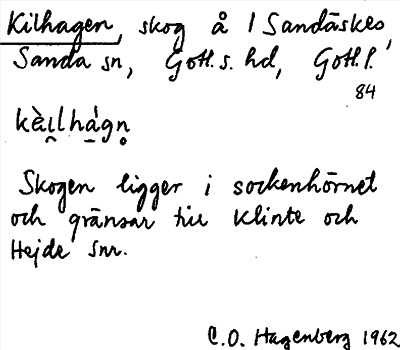 Kilhagen, skog å 1 Sandäskes,
Sanda sn, Gotl. s. hd, Gotl. l.
84
kèi̯lhág̱n̥
Skogen ligger i sockenhörnet
och gränsar till Klinte och
Hejde snr.
C.O. Hagenberg 1962